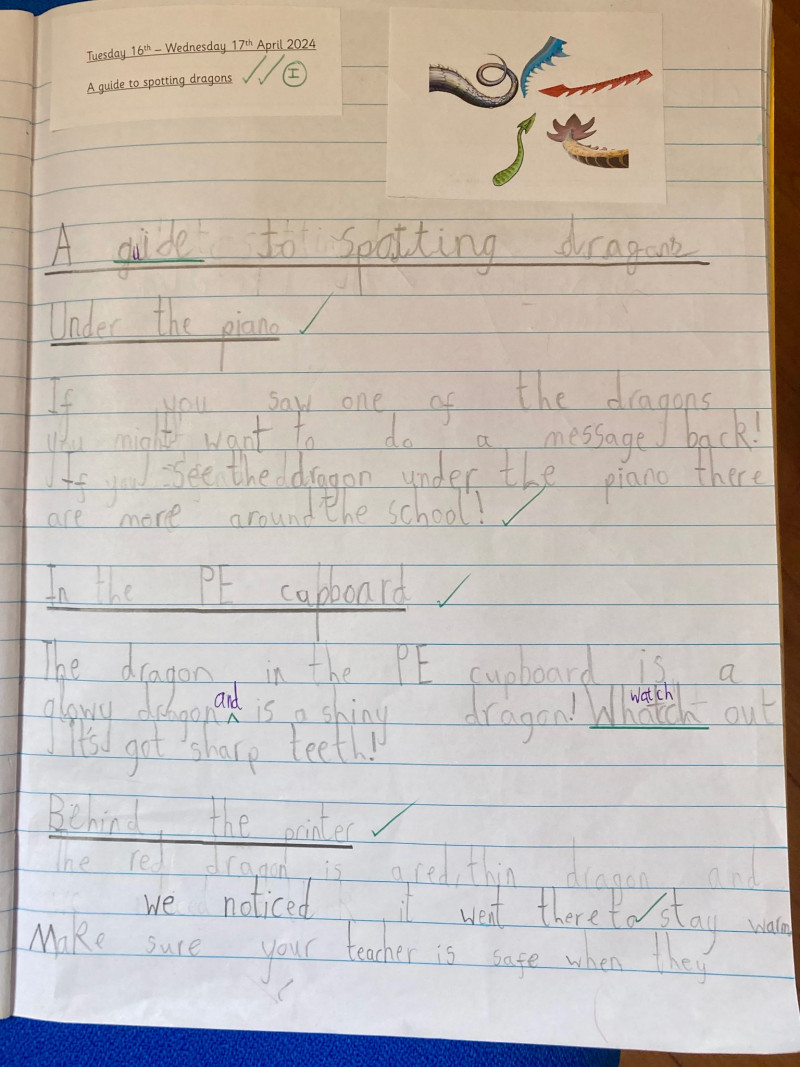 Tuesday 16th – Wednesday 17th April 2024
A guide to spotting dragons
I
A guide to spotting dragons
Under the piano
If you saw one of the dragons
you might want to do a message back!
If you see the dragon under the piano there
are more around the school!
In the PE cupboard
The dragon in the PE cupboard is a
and watch
glowy dragon is a shiny dragon! Whatch out
It's got sharp teeth!
Behind the printer
The red dragon is a red, thin dragon and
we noticed it went there to stay warm
Make sure your teacher is safe when they